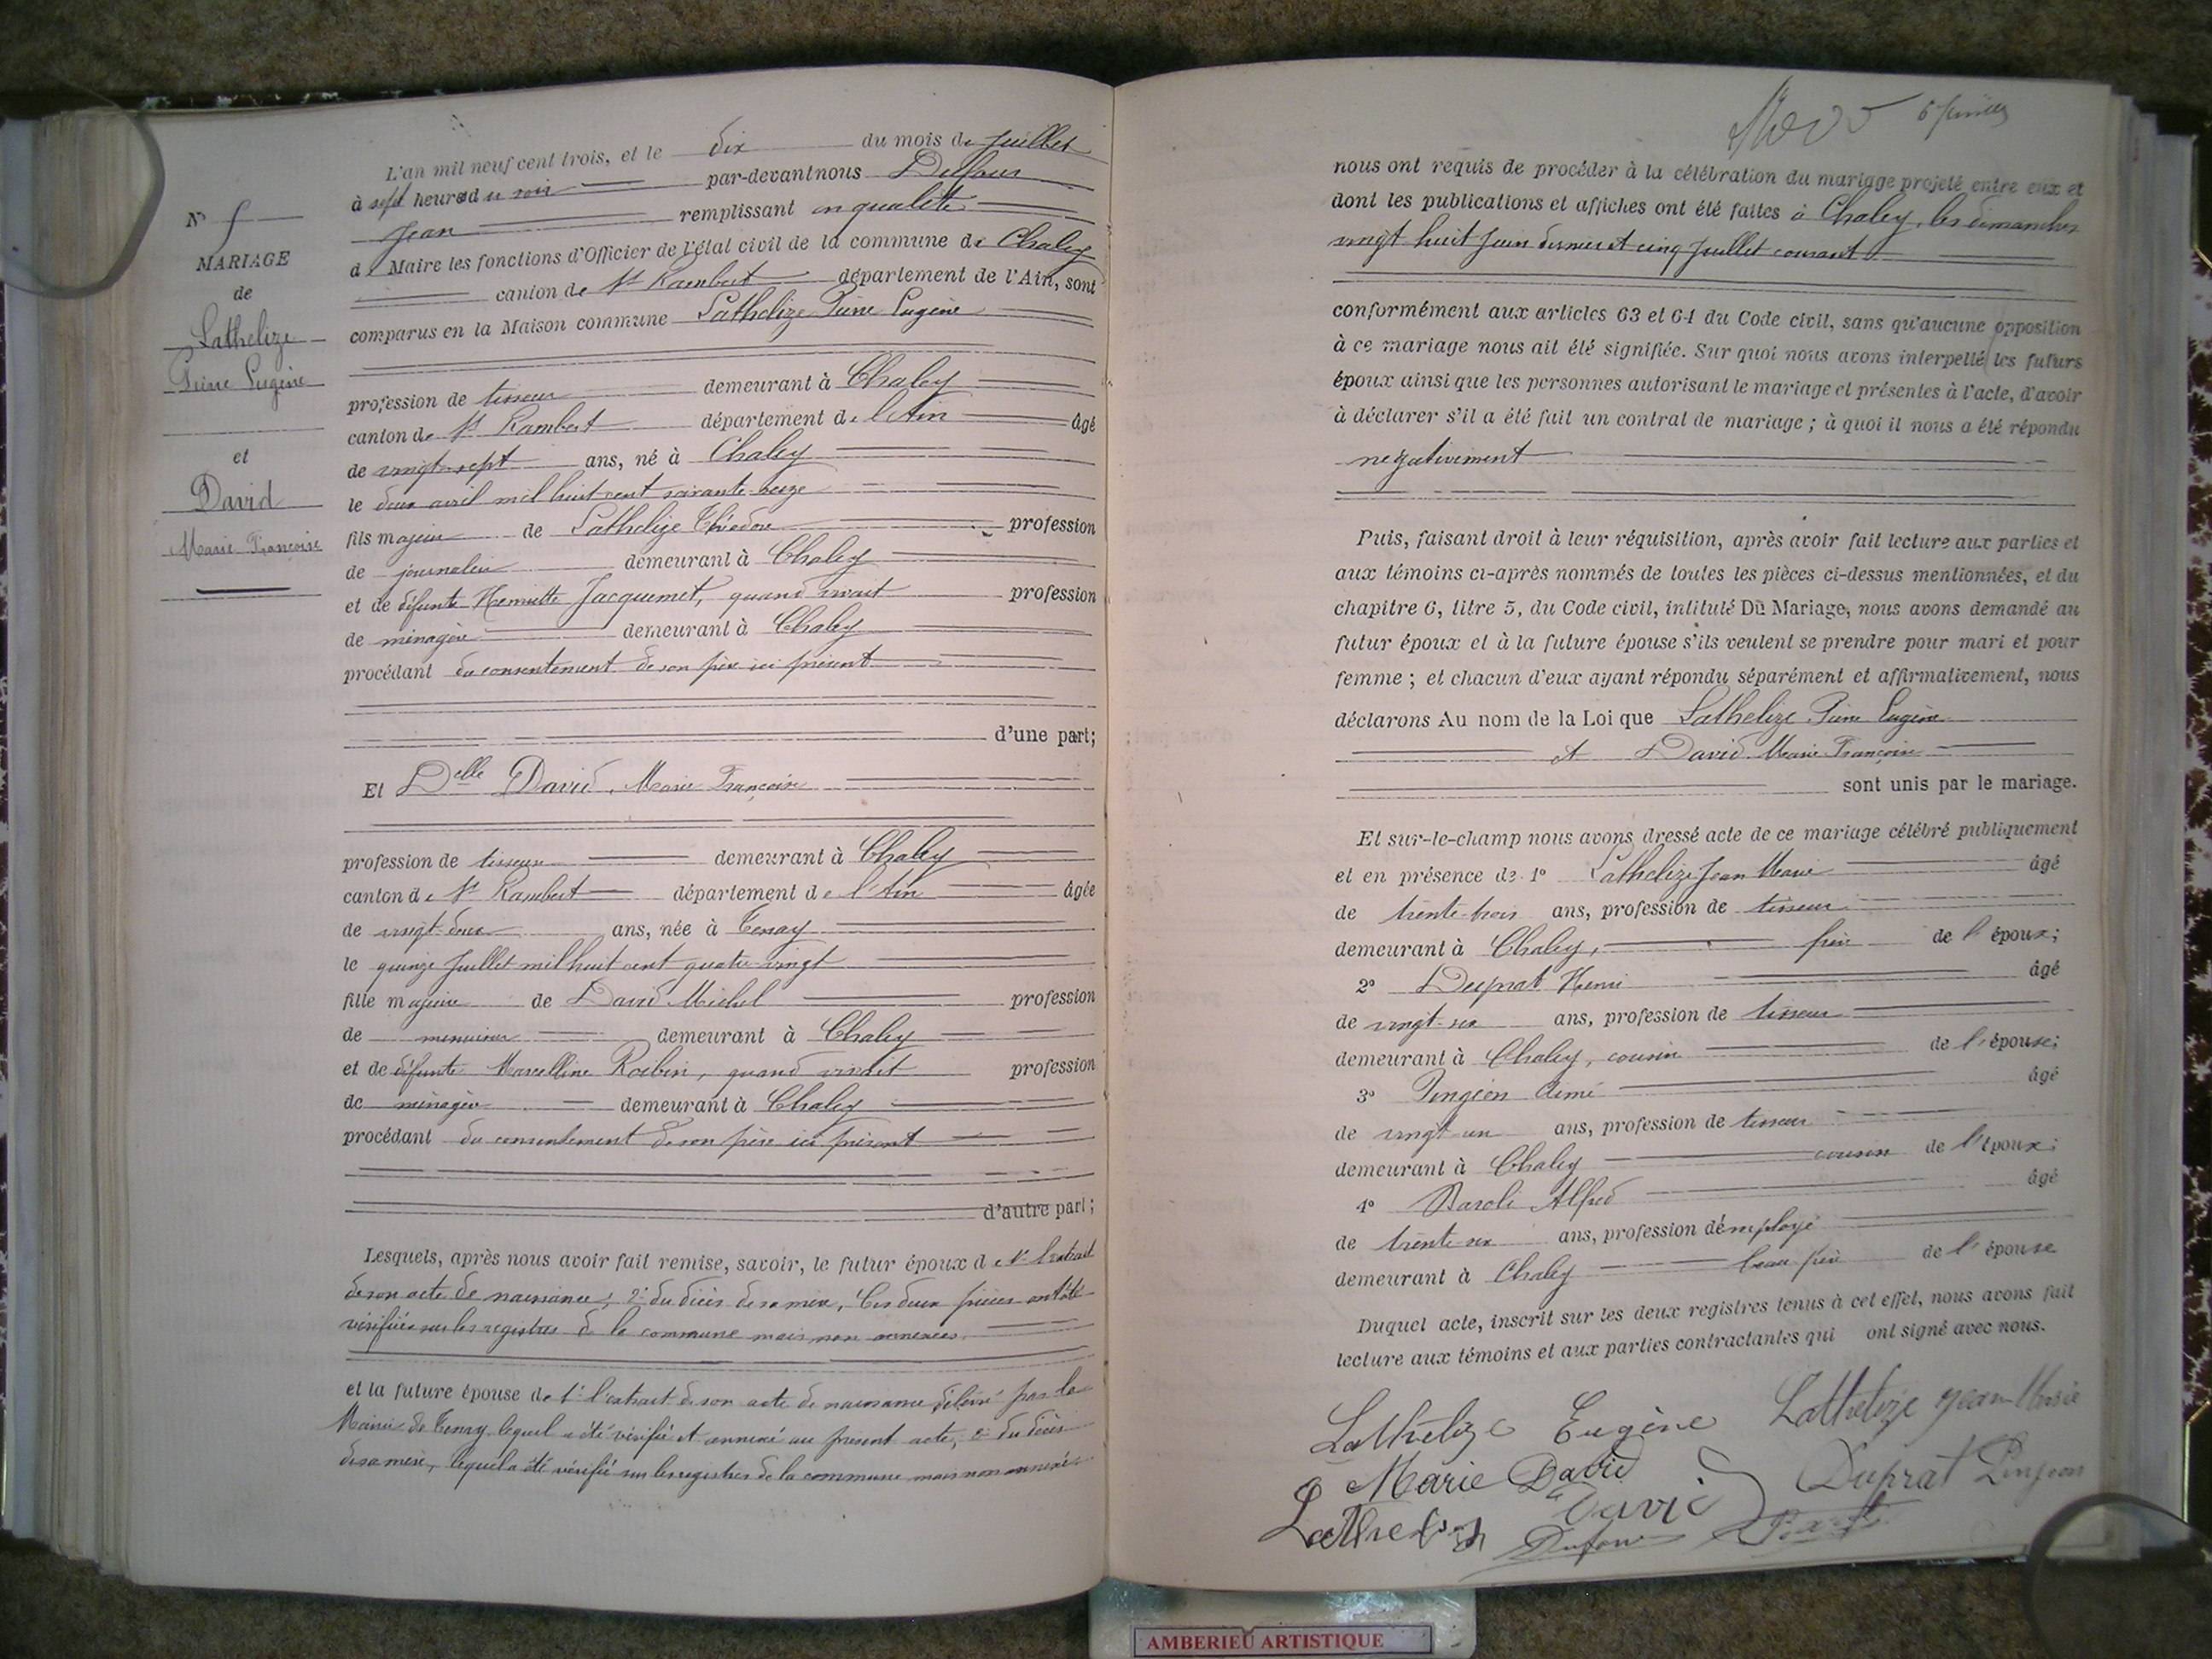 L'an mil neuf cent trois, et le dix du mois de Juillet
à sept heures du soir par-devant nous
Jean remplissant en qualité
de Maire les fonctions d'Officier de l'état civil de la commune de Chaley
canton de St Rambert département de l'Ain, sont
comparus en la Maison commune Lathelize Pierre Eugène
profession de tisseur demeurant à Chaley
canton de St Rambert département de l'Ain âgé
de vingt-sept ans, né à Chaley
le deux avril mil huit cent soixante-seize
fils majeur de Lathelize Théodore profession
de journalier demeurant à Chaley
et de défunte Henriette Jacquemet, quand vivait profession
de ménagère demeurant à Chaley
procédant du consentement de son père ici présent
d'une part;
Et Delle David, Marie Françoise
profession de tisseuse demeurant à Chaley
canton de St Rambert département de l'Ain âgée
de vingt-deux ans, née à Tenay
le quinze Juillet mil huit cent quatre-vingt
fille majeure de David Michel profession
de menuisier demeurant à Chaley
et de défunte Marcelline Roibin, quand vivait profession
de ménagère demeurant à Chaley
procédant du consentement de son père ici présent
d'autre part;
Lesquels, après nous avoir fait remise, savoir, le futur époux de 1° l'extrait
de son acte de naissance; 2° du décès de sa mère, Ces deux pièces ont été
vérifiées sur les registres de la commune mais non annexées.
et la future épouse de 1° l'extrait de son acte de naissance délivré par la
Mairie de Tenay lequel a été vérifié et annexé au présent acte, 2° du décès
de sa mère, lequel a été vérifié sur les registres de la commune mais non annexé.
N°
MARIAGE
de
Lathelize
Pierre Eugène
et
David
Marie Françoise
nous ont requis de procéder à la célébration du mariage projeté entre eux et
dont les publications et affiches ont été faites à Chaley, les dimanches
vingt huit Juin dernier et cinq Juillet courant
conformément aux articles 63 et 64 du Code civil, sans qu'aucune opposition
à ce mariage nous ait été signifiée. Sur quoi nous avons interpellé les futurs
époux ainsi que les personnes autorisant le mariage et présentes à l'acte, d'avoir
à déclarer s'il a été fait un contrat de mariage; à quoi il nous a été répondu
négativement
Puis, faisant droit à leur réquisition, après avoir fait lecture aux parties et
aux témoins ci-après nommés de toutes les pièces ci-dessus mentionnées, et du
chapitre 6, titre 5, du Code civil, intitulé Du Mariage, nous avons demandé au
futur époux et à la future épouse s'ils veulent se prendre pour mari et pour
femme; et chacun d'eux ayant répondu séparément et affirmativement, nous
déclarons Au nom de la Loi que Lathelize Pierre Eugène
et David Marie Françoise
sont unis par le mariage.
Et sur-le-champ nous avons dressé acte de ce mariage célébré publiquement
et en présence de 1° Lathelize Jean Marie âgé
de trente-trois ans, profession de tisseur
demeurant à Chaley, frère de l'époux;
2° Duprat Henri âgé
de vingt-six ans, profession de tisseur
demeurant à Chaley, cousin de l'épouse;
3° Pingeon Aimé âgé
de vingt-un ans, profession de tisseur
demeurant à Chaley cousin de l'époux;
4° Alfred âgé
de trente-six ans, profession d'employé
demeurant à Chaley beau frère de l'épouse
Duquel acte, inscrit sur les deux registres tenus à cet effet, nous avons fait
lecture aux témoins et aux parties contractantes qui ont signé avec nous.
Lathelize Eugène Lathelize Jean-Marie
Marie David Duprat Pingeon
David
AMBERIEU ARTISTIQUE